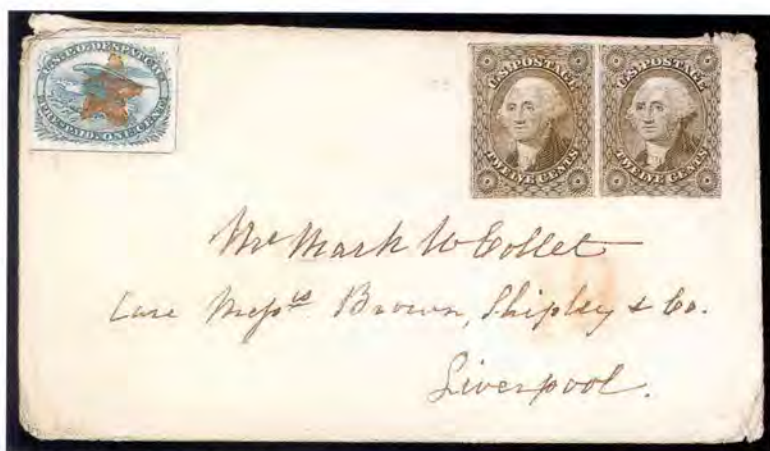 U.S.P.O. DESPATCH
PRE-PAID. ONE CENT.
U.S. POSTAGE
TWELVE CENTS
U.S. POSTAGE
TWELVE CENTS
Mr Mark W Collet
Care Messrs Brown, Shipley & Co.
Liverpool.